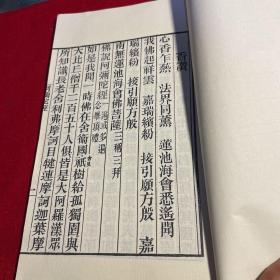 香讚
心香乍爇　法界同薰　蓮池海會悉遙聞
我佛起祥雲　嘉瑞繽紛　接引願方殷　嘉
瑞繽紛　接引願方殷
南無蓮池海會佛菩薩三稱三拜
佛說阿彌陀經
如是我聞一時佛在舍衛國祇樹給孤獨園與
大比丘僧千二百五十人俱皆是大阿羅漢眾
所知識長老舍利弗摩訶目犍連摩訶迦葉摩
一